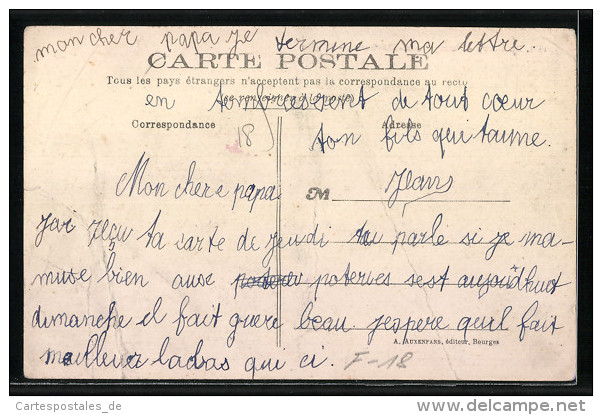 mon cher papa je termine ma lettre
CARTE POSTALE
Tous les pays étrangers n'acceptent pas la correspondance au recto
(se renseigner à la poste)
en tembressent de tout cœur
Correspondance
18
Adresse
ton fils qui taime.
Mon chere papa
M
Jeans
jai reçu ta carte de jeudi tu parle si je ma-
muse bien ause poterves sest aujoüdhuct
dimanche el fait guere beau. jespere quil fait
A. AUXENFANS, éditeur, Bourges
meilleur labas qui ci.
F-18
Cartespostales_de
www.delcampe.net